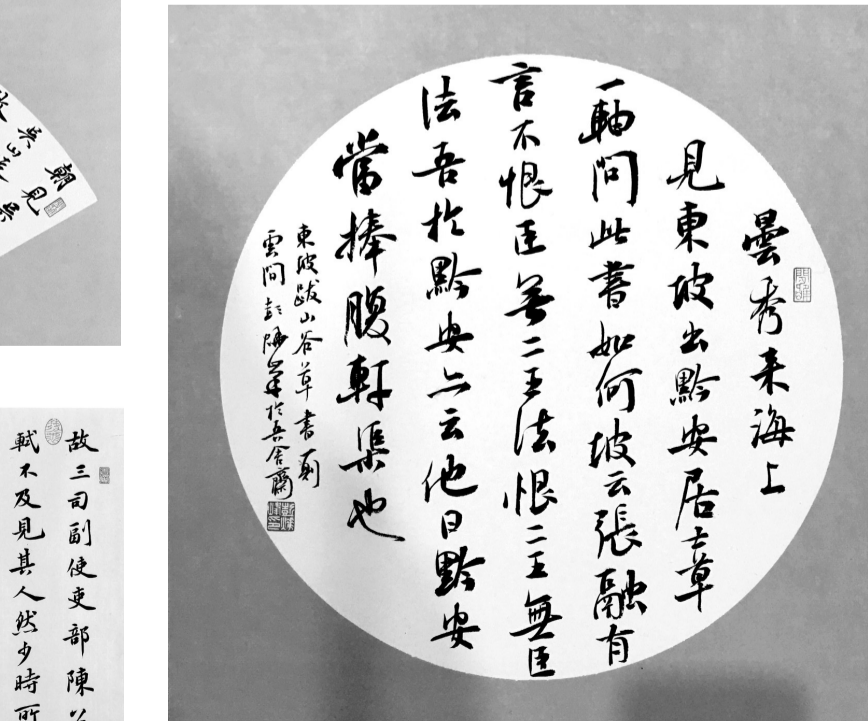 曇秀来海上
見東坡出黔安居士草
一軸問此書如何坡云張融有
言不恨臣無二王法恨二王無臣
法吾於黔安亦云他日黔安
當捧腹軒渠也
東坡跋山谷草書一則
雲間彭燁峯於吾舍齋
朝見
吳山
故三司副使吏部陳公
軾不及見其人然少時所